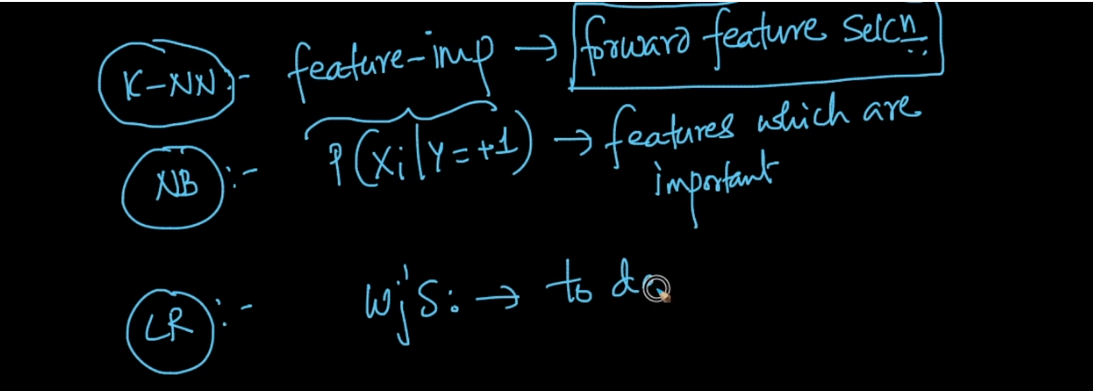 K-NN:- feature-imp → forward feature selcn
NB:- P(xi|Y=+1) → features which are
important
LR:- wj's: → to do